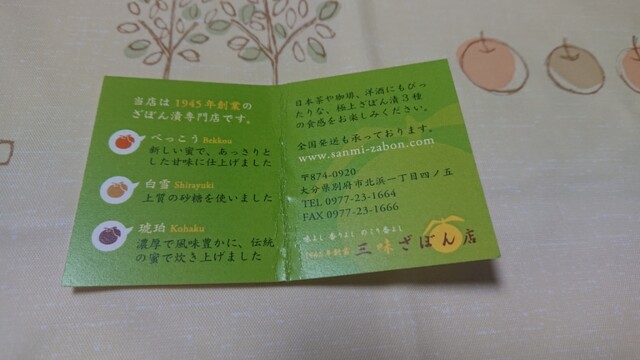 当店は1945年創業の
ざぼん漬専門店です。
べっこう Bekkou
新しい蜜で、あっさりと
した甘味に仕上げました
白雪 Shirayuki
上質の砂糖を使いました
琥珀 Kohaku
濃厚で風味豊かに、伝統
の蜜で炊き上げました
日本茶や珈琲、洋酒にもぴっ
たりな、極上ざぼん漬3種
の食感をお楽しみください。
全国発送も承っております。
www.sanmi-zabon.com
〒874-0920
大分県別府市北浜一丁目四ノ五
TEL 0977-23-1664
FAX 0977-23-1666
味よし 香りよし のこり香よし
1945年創業 三味ざぼん店